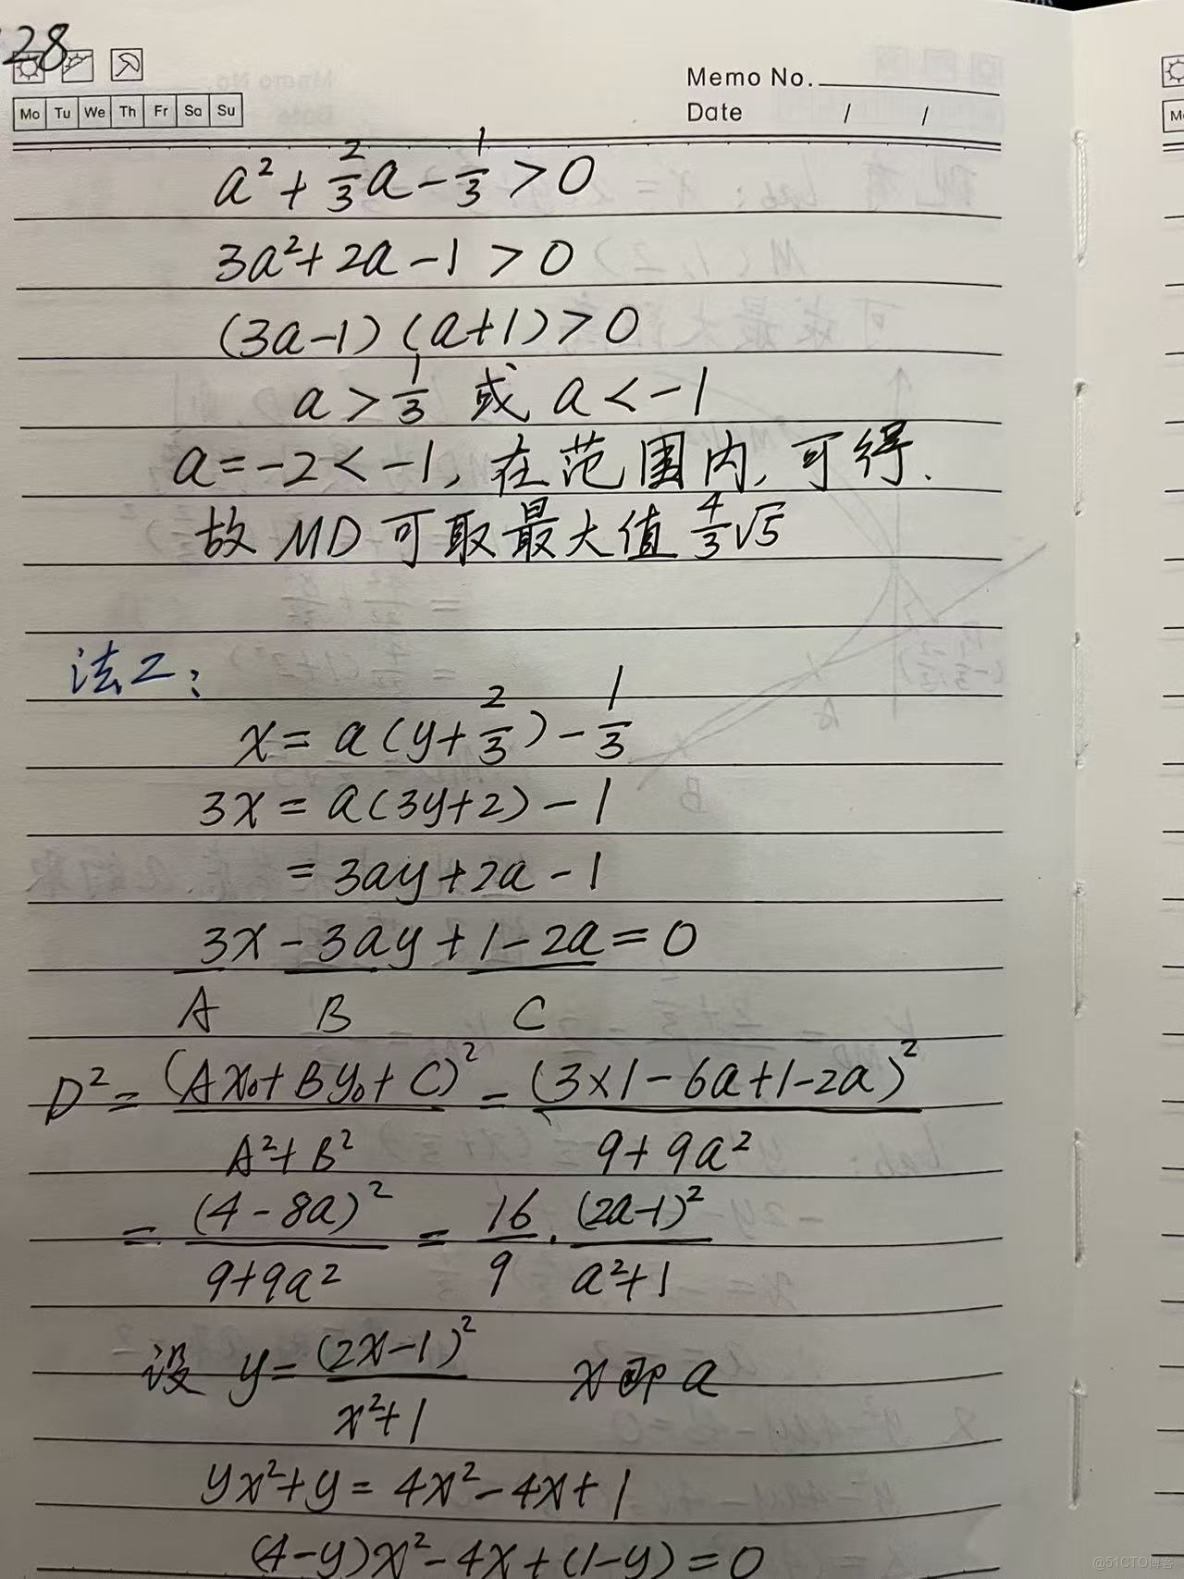 28
Memo No.
Mo Tu We Th Fr Sa Su
Date / /
a² + 2/3 a - 1/3 > 0
3a² + 2a - 1 > 0
(3a-1)(a+1) > 0
a > 1/3 或 a < -1
a = -2 < -1, 在范围内, 可得.
故 MD 可取最大值 4/3 √5
法2:
x = a(y + 2/3) - 1/3
3x = a(3y+2) - 1
= 3ay + 2a - 1
3x - 3ay + 1 - 2a = 0
A B C
D² = (Ax₀+By₀+C)² / (A²+B²) = (3×1-6a+1-2a)² / (9+9a²)
= (4-8a)² / (9+9a²) = 16/9 · (2a-1)² / (a²+1)
设 y = (2x-1)² / (x²+1) x即a
yx²+y = 4x²-4x+1
(4-y)x²-4x+(1-y)=0
@51CTO博客